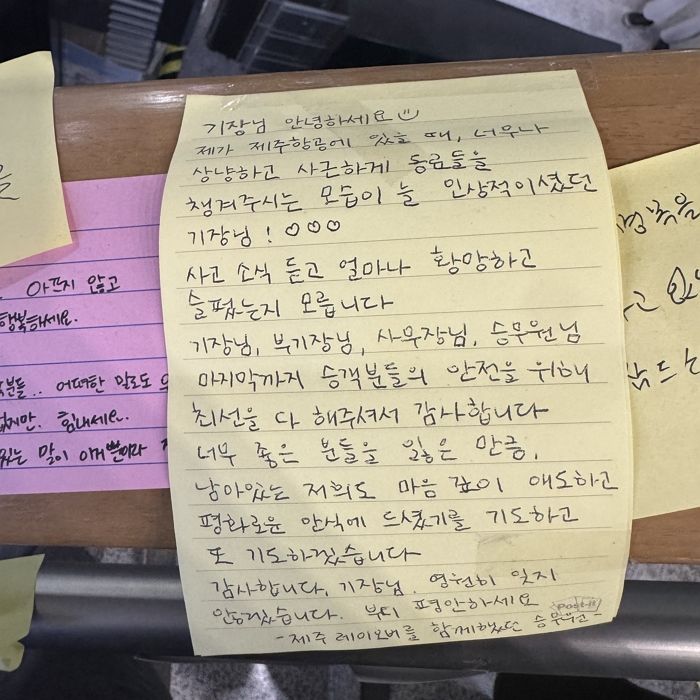 기장님 안녕하세요
제가 제주항공에 있을 때, 너무나
상냥하고 사근하게 동료들을
챙겨주시는 모습이 늘 인상적이셨던
기장님! ♡♡♡
사고 소식 듣고 얼마나 황망하고
슬펐는지 모릅니다
기장님, 부기장님, 사무장님, 승무원님
마지막까지 승객분들의 안전을 위해
최선을 다 해주셔서 감사합니다
너무 좋은 분들을 잃은 만큼,
남아있는 저희도 마음 깊이 애도하고
평화로운 안식에 드셨기를 기도하고
또 기도하겠습니다
감사합니다, 기장님. 영원히 잊지
않겠습니다. 부디 평안하세요
-제주 레이오버를 함께했던 승무원-
Post-it
아프지 않고
행복해세요.
분들.. 어떠한 말로도
없지만. 힘내세요.
있는 말이 이거뿐이라
을
명복을
고